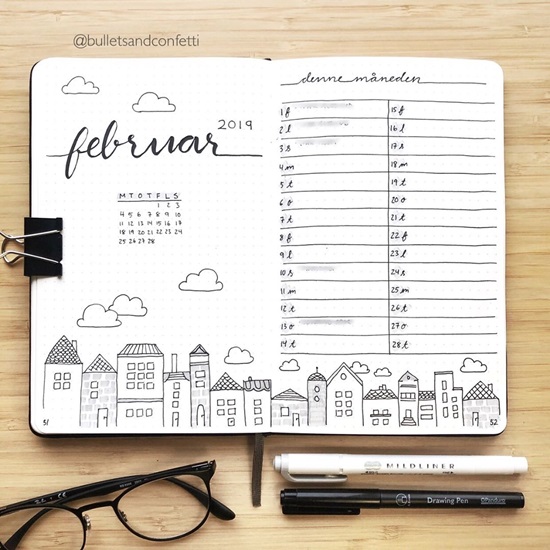 @bulletsandconfetti
februar
2019
M T O T F L S
1 2 3
4 5 6 7 8 9 10
11 12 13 14 15 16 17
18 19 20 21 22 23 24
25 26 27 28
51
denne måneden
1 f
2 l
3 s
4 m
5 t
6 o
7 t
8 f
9 l
10 s
11 m
12 t
13 o
14 t
15 f
16 l
17 s
18 m
19 t
20 o
21 t
22 f
23 l
24 s
25 m
26 t
27 o
28 t
52
MILDLINER
Drawing Pen